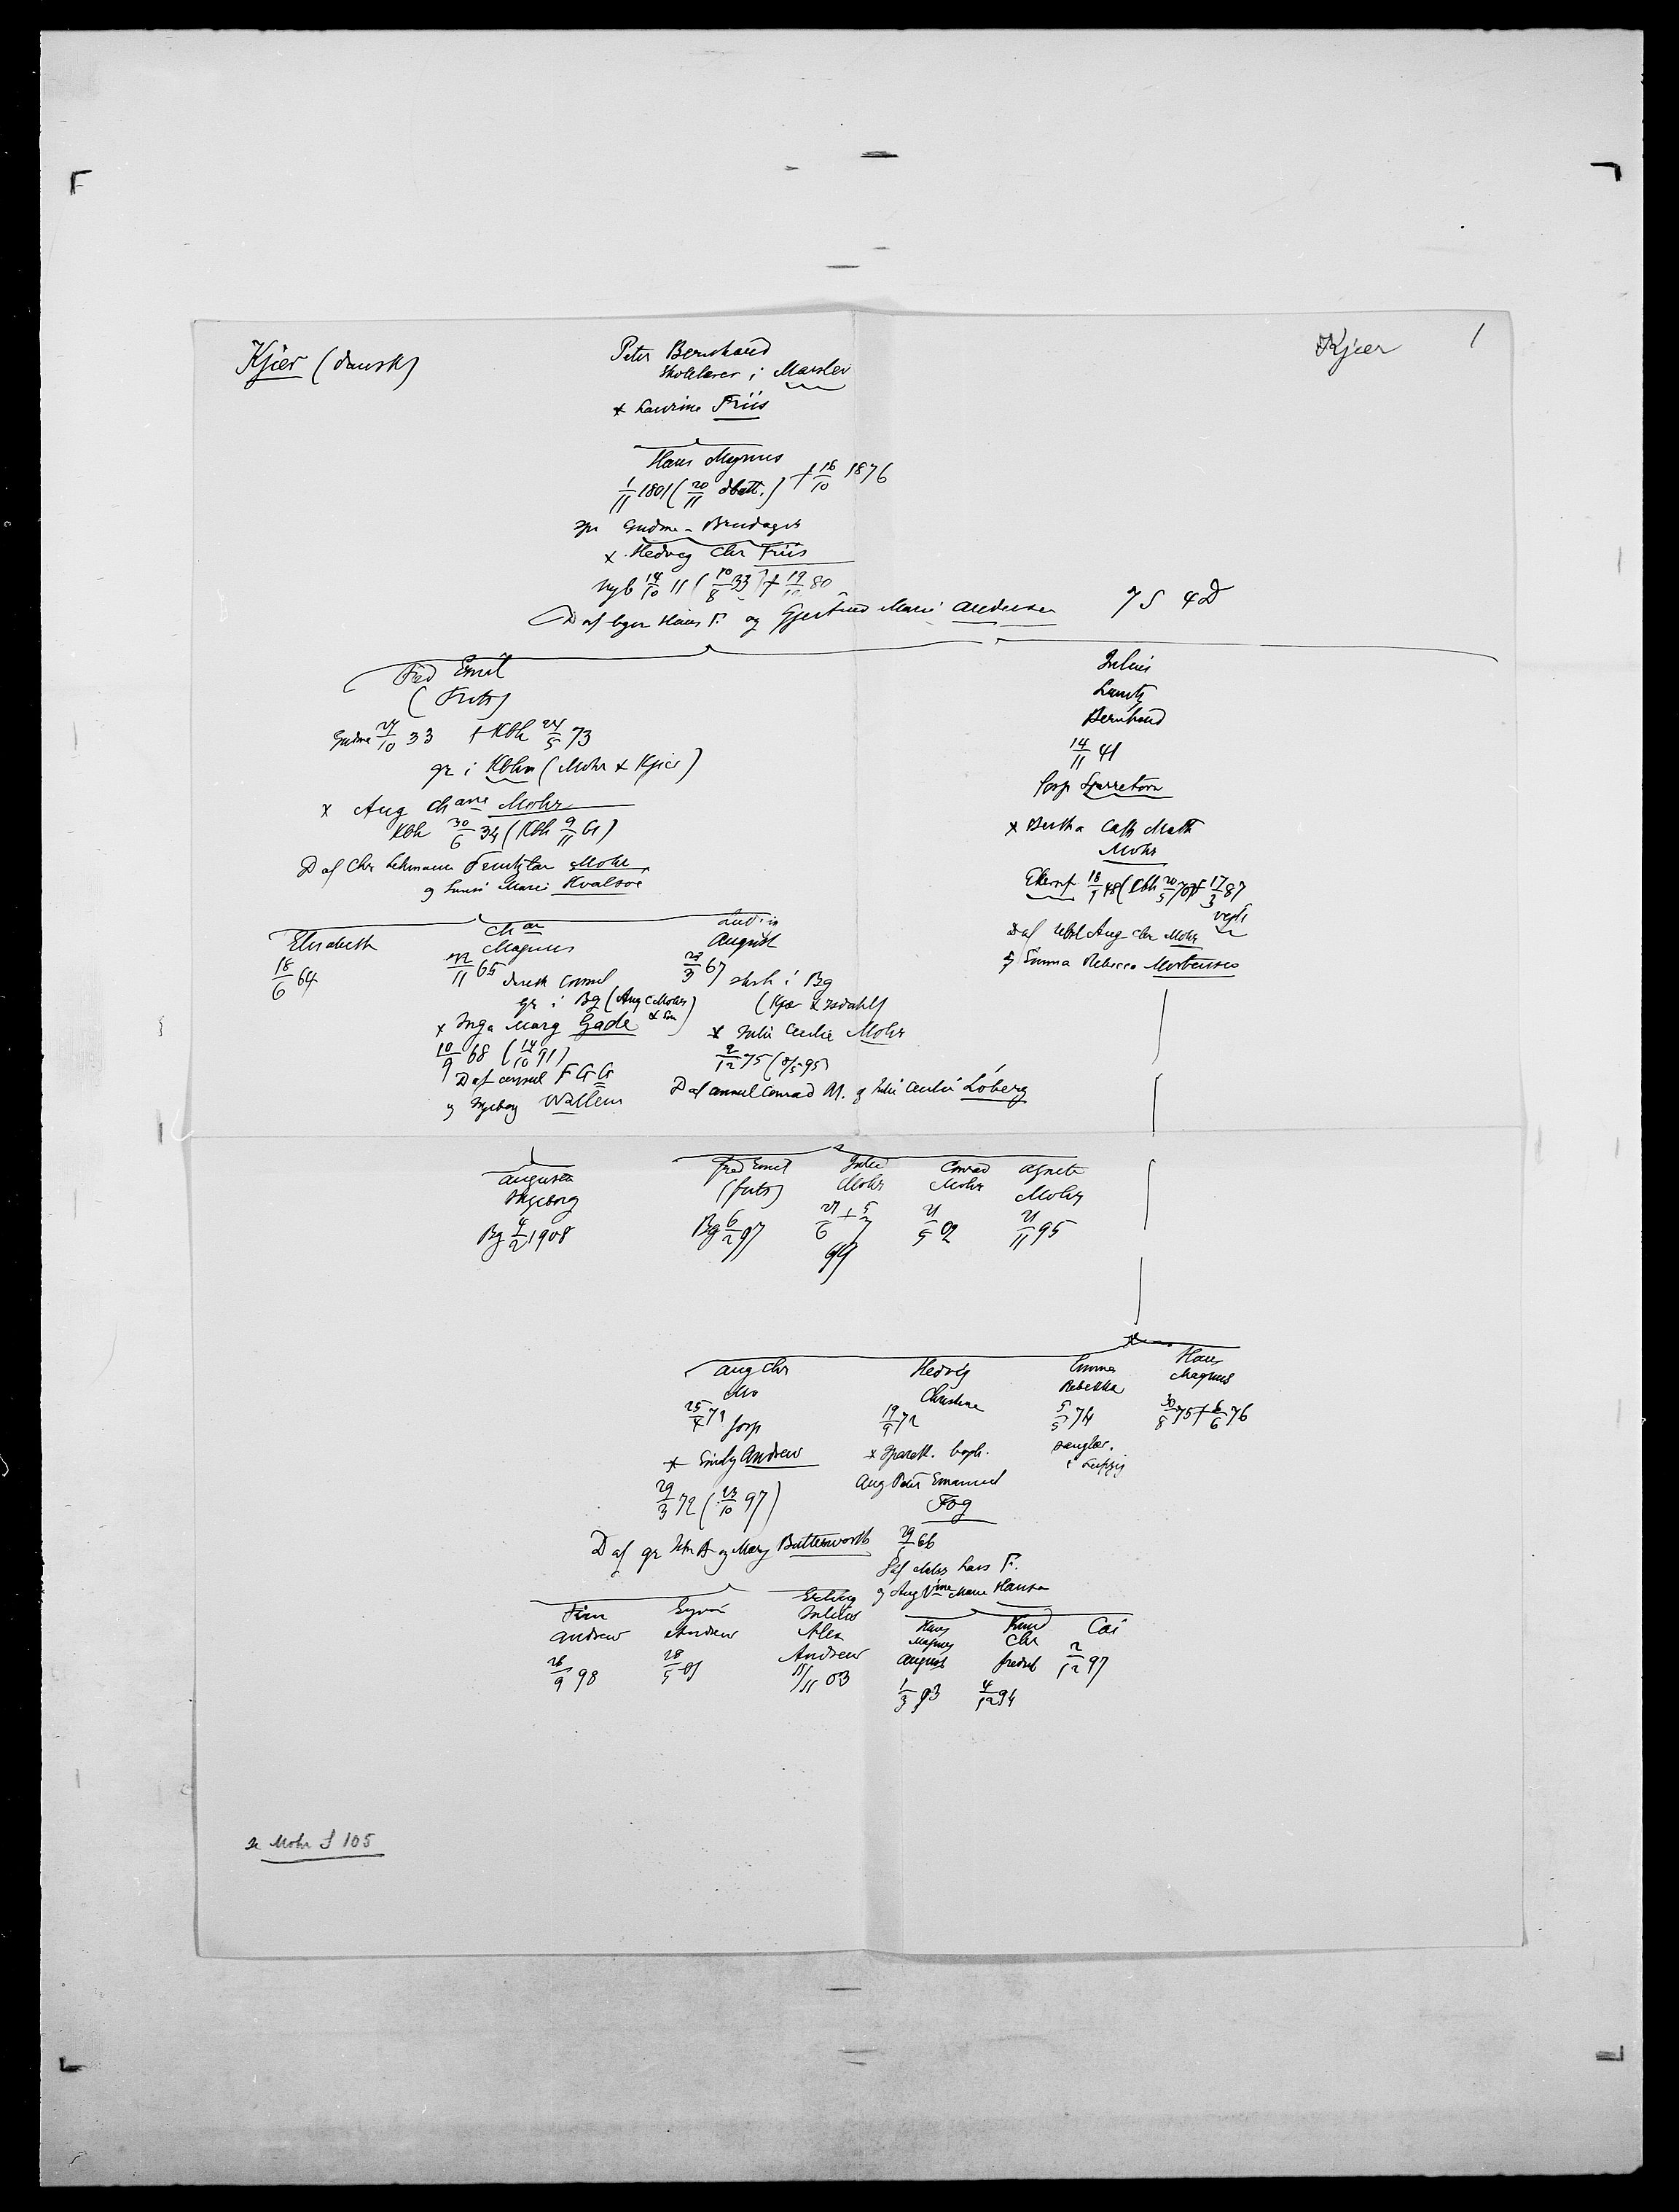 Kjær (dansk)
Kjær 1
Peter Bernhard
Skolelærer i Marslev
x Laurine Friis
Hans Magnus
1/11 1801 (20/11 dbatt.) † 16/10 1876
spr Gudme - Brudager
x Hedvig Chr Friis
Nyb 14/10 11 (10/8 33) † 19/ 80
D af bgr Hans F. og Gjertrud Marie Andersen
7 S 4 D
Fred Emil
(Frits)
Gudme 27/10 33 † Kbh 24/5 73
gr i Kbhn (Mohr & Kjær)
x Aug Chane Mohr
Kbh 30/6 34 (Kbh 9/11 61)
D af Chr Lehmann Mohr
og Marie Kvalsoe
Julius
Lauritz
Bernhard
14/11 41
x Bertha Cath Math
Mohr
18/ 48 (Kbh 20/5 70) † 17/3 87
D af Aug Chr Mohr
og Emma Rebecca Mortensen
Elisabeth
18/6 64
Chr
Magnus
22/11 65 dansk consul
gr i Bg (Aug C Mohr & Søn)
x Inga Marg Gade
10/9 68 (14/10 91)
D af consul F G G
og Ingeborg Wallem
Ludvig
August
3 67 i Bg
(Kjær & Isdahl)
x Julie Cecilie Mohr
2/12 75 (8/5 95)
D af consul Conrad M. og Julie Cecilie Loberg
Augusta
Ingeborg
Bg 4/2 1908
Fred Emil
(Frits)
Bg 6/2 97
Julie
Mohr
27/6 † 5/7
99
Conrad
Mohr
21/5 02
Agnete
Mohr
21/11 95
Aug Chr
Mo
25/4 71
x Emily Andrew
29/3 72 (23/10 97)
D af gr John A og Mary Butterworth
Hedvig
Christine
19/ 72
x Sparek. bogh.
Aug Peter Emanuel
Fog
29/ 66
S af Hans F.
og Aug Vine Marie Hansen
Emma
Rebekka
5/5 74
sanglær.
i Leipzig
Hans
Magnus
30/8 75 † 6/6 76
Finn
Andrew
26/9 98
Andrew
28/5 01
Erling
Julius
Alex
Andrew
11/11 03
Hans
Magnus
August
1/3 93
Knud
Chr
Fredrik
4/12 94
Cai
2/12 97
se Mohr S 105